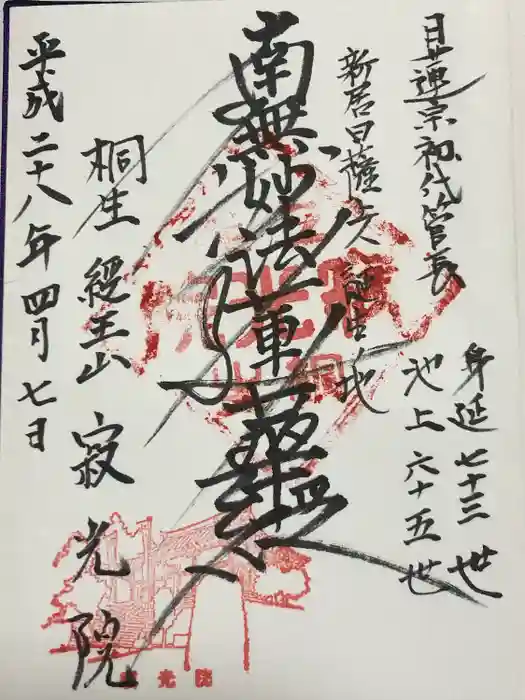 日蓮宗初代管長
身延七十三世
池上六十五世
新居日薩上人誕生地
南無妙法蓮華経
桐生 經王山 寂光院
平成二十八年四月七日
寂光院